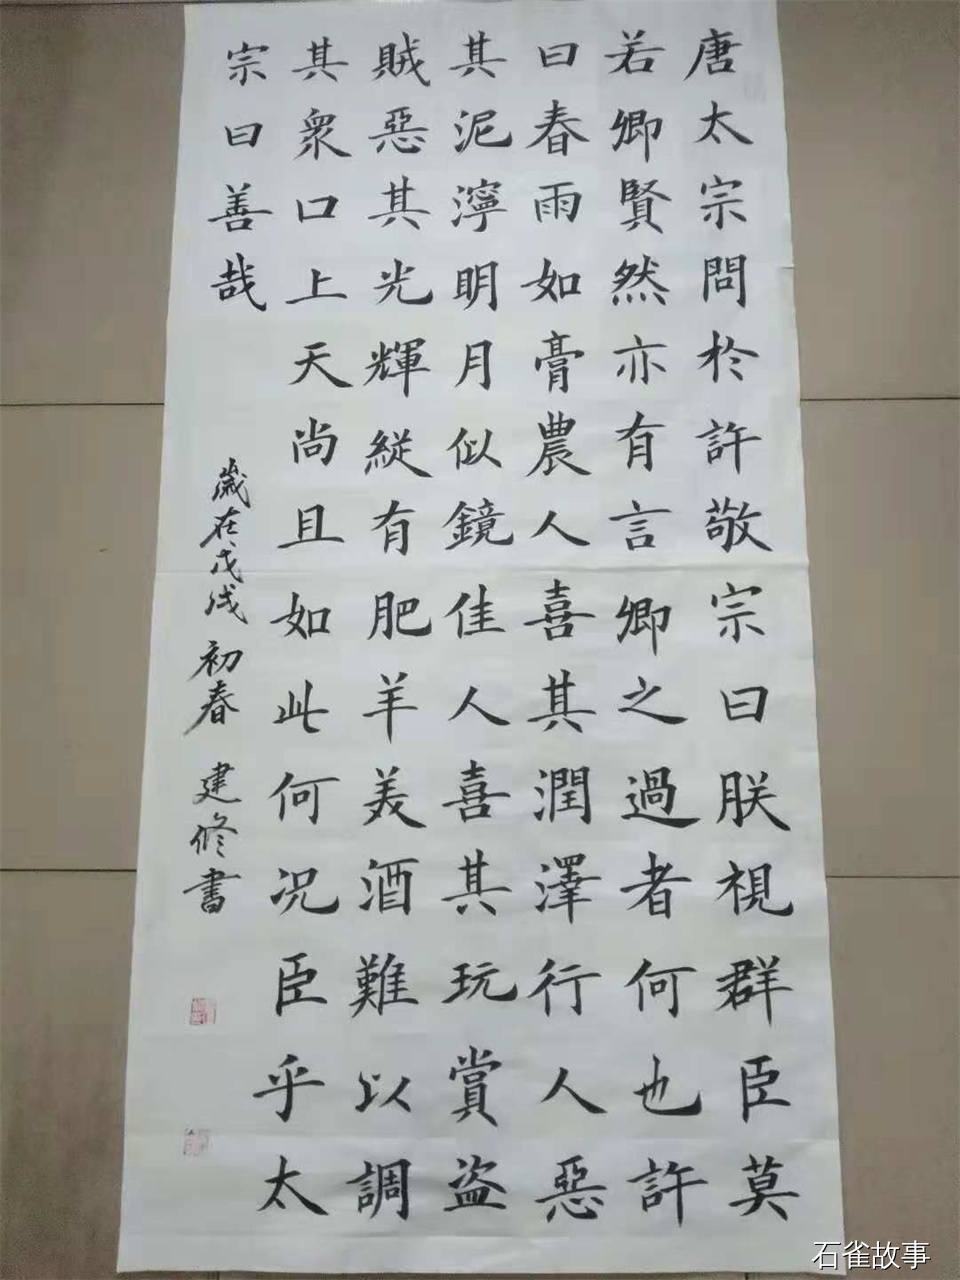 唐太宗問於許敬宗曰朕視群臣莫
若卿賢然亦有言卿之過者何也許
曰春雨如膏農人喜其潤澤行人惡
其泥濘明月似鏡佳人喜其玩賞盗
賊惡其光輝縱有肥羊美酒難以調
其衆口上天尚且如此何况臣乎太
宗曰善哉
歲在戊戌初春 建修書
石雀故事